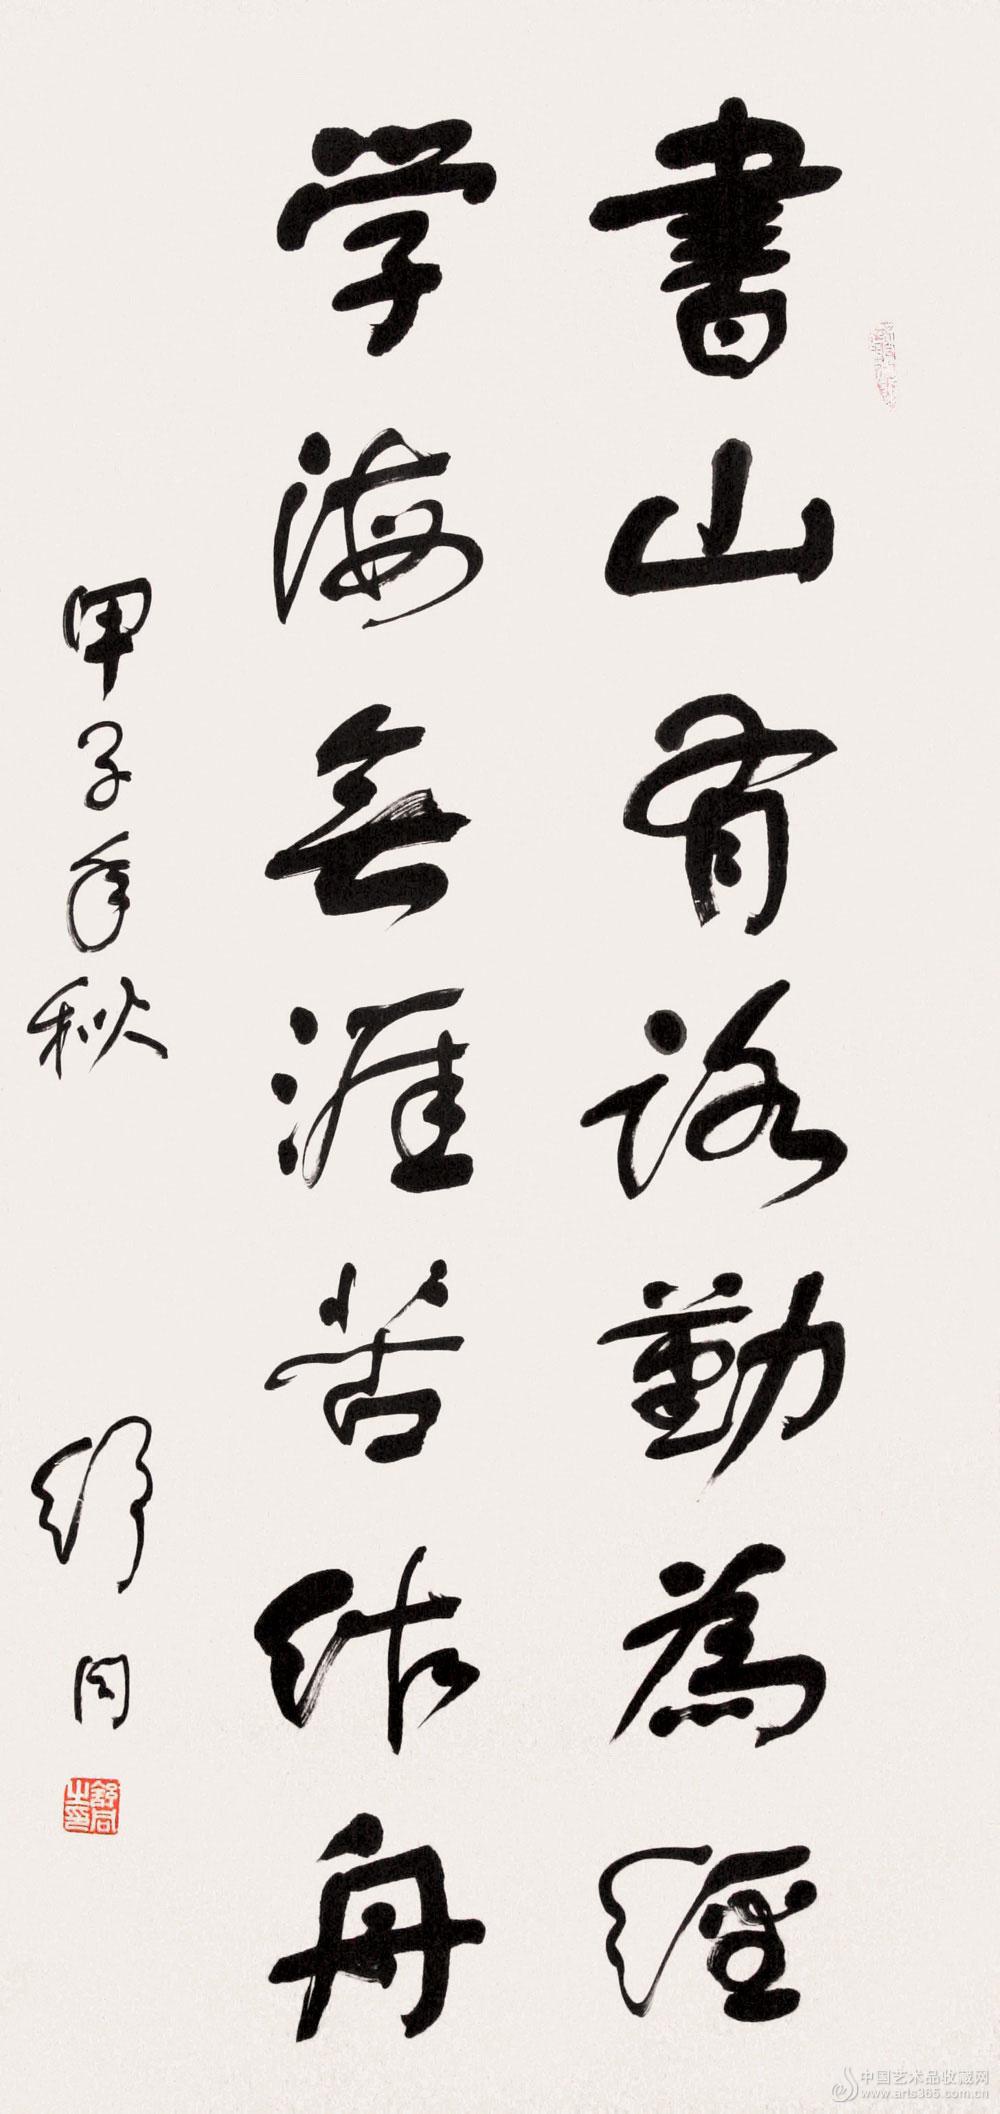 書山有路勤為經
学海無涯苦作舟
甲子年秋 舒同
舒同之印
中国艺术品收藏网
www.arts365.com.cn